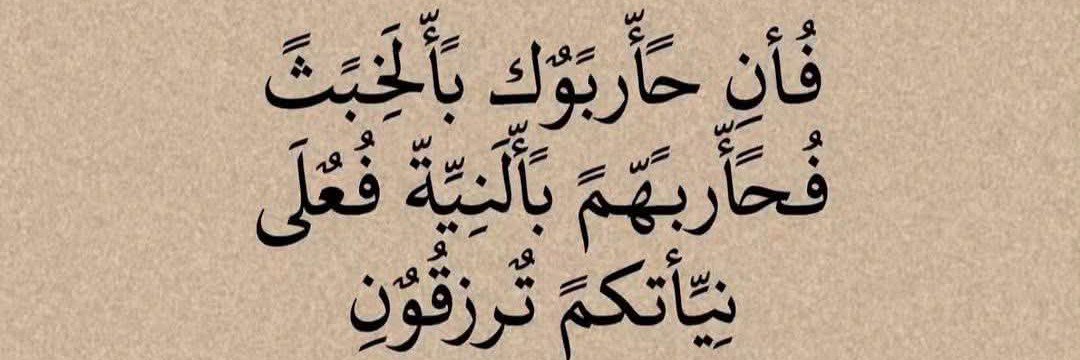 فُأنِ حًأّربًوٌك بًأّلَخِبًثً
فُحًأّربًهّمً بًأّلَنِيِّةّ فُعٌلَى
نِيِّأتکمً تٌرزقُوٌنِ